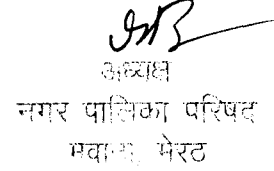 अध्यक्ष
नगर पालिका परिषद
मेरठ